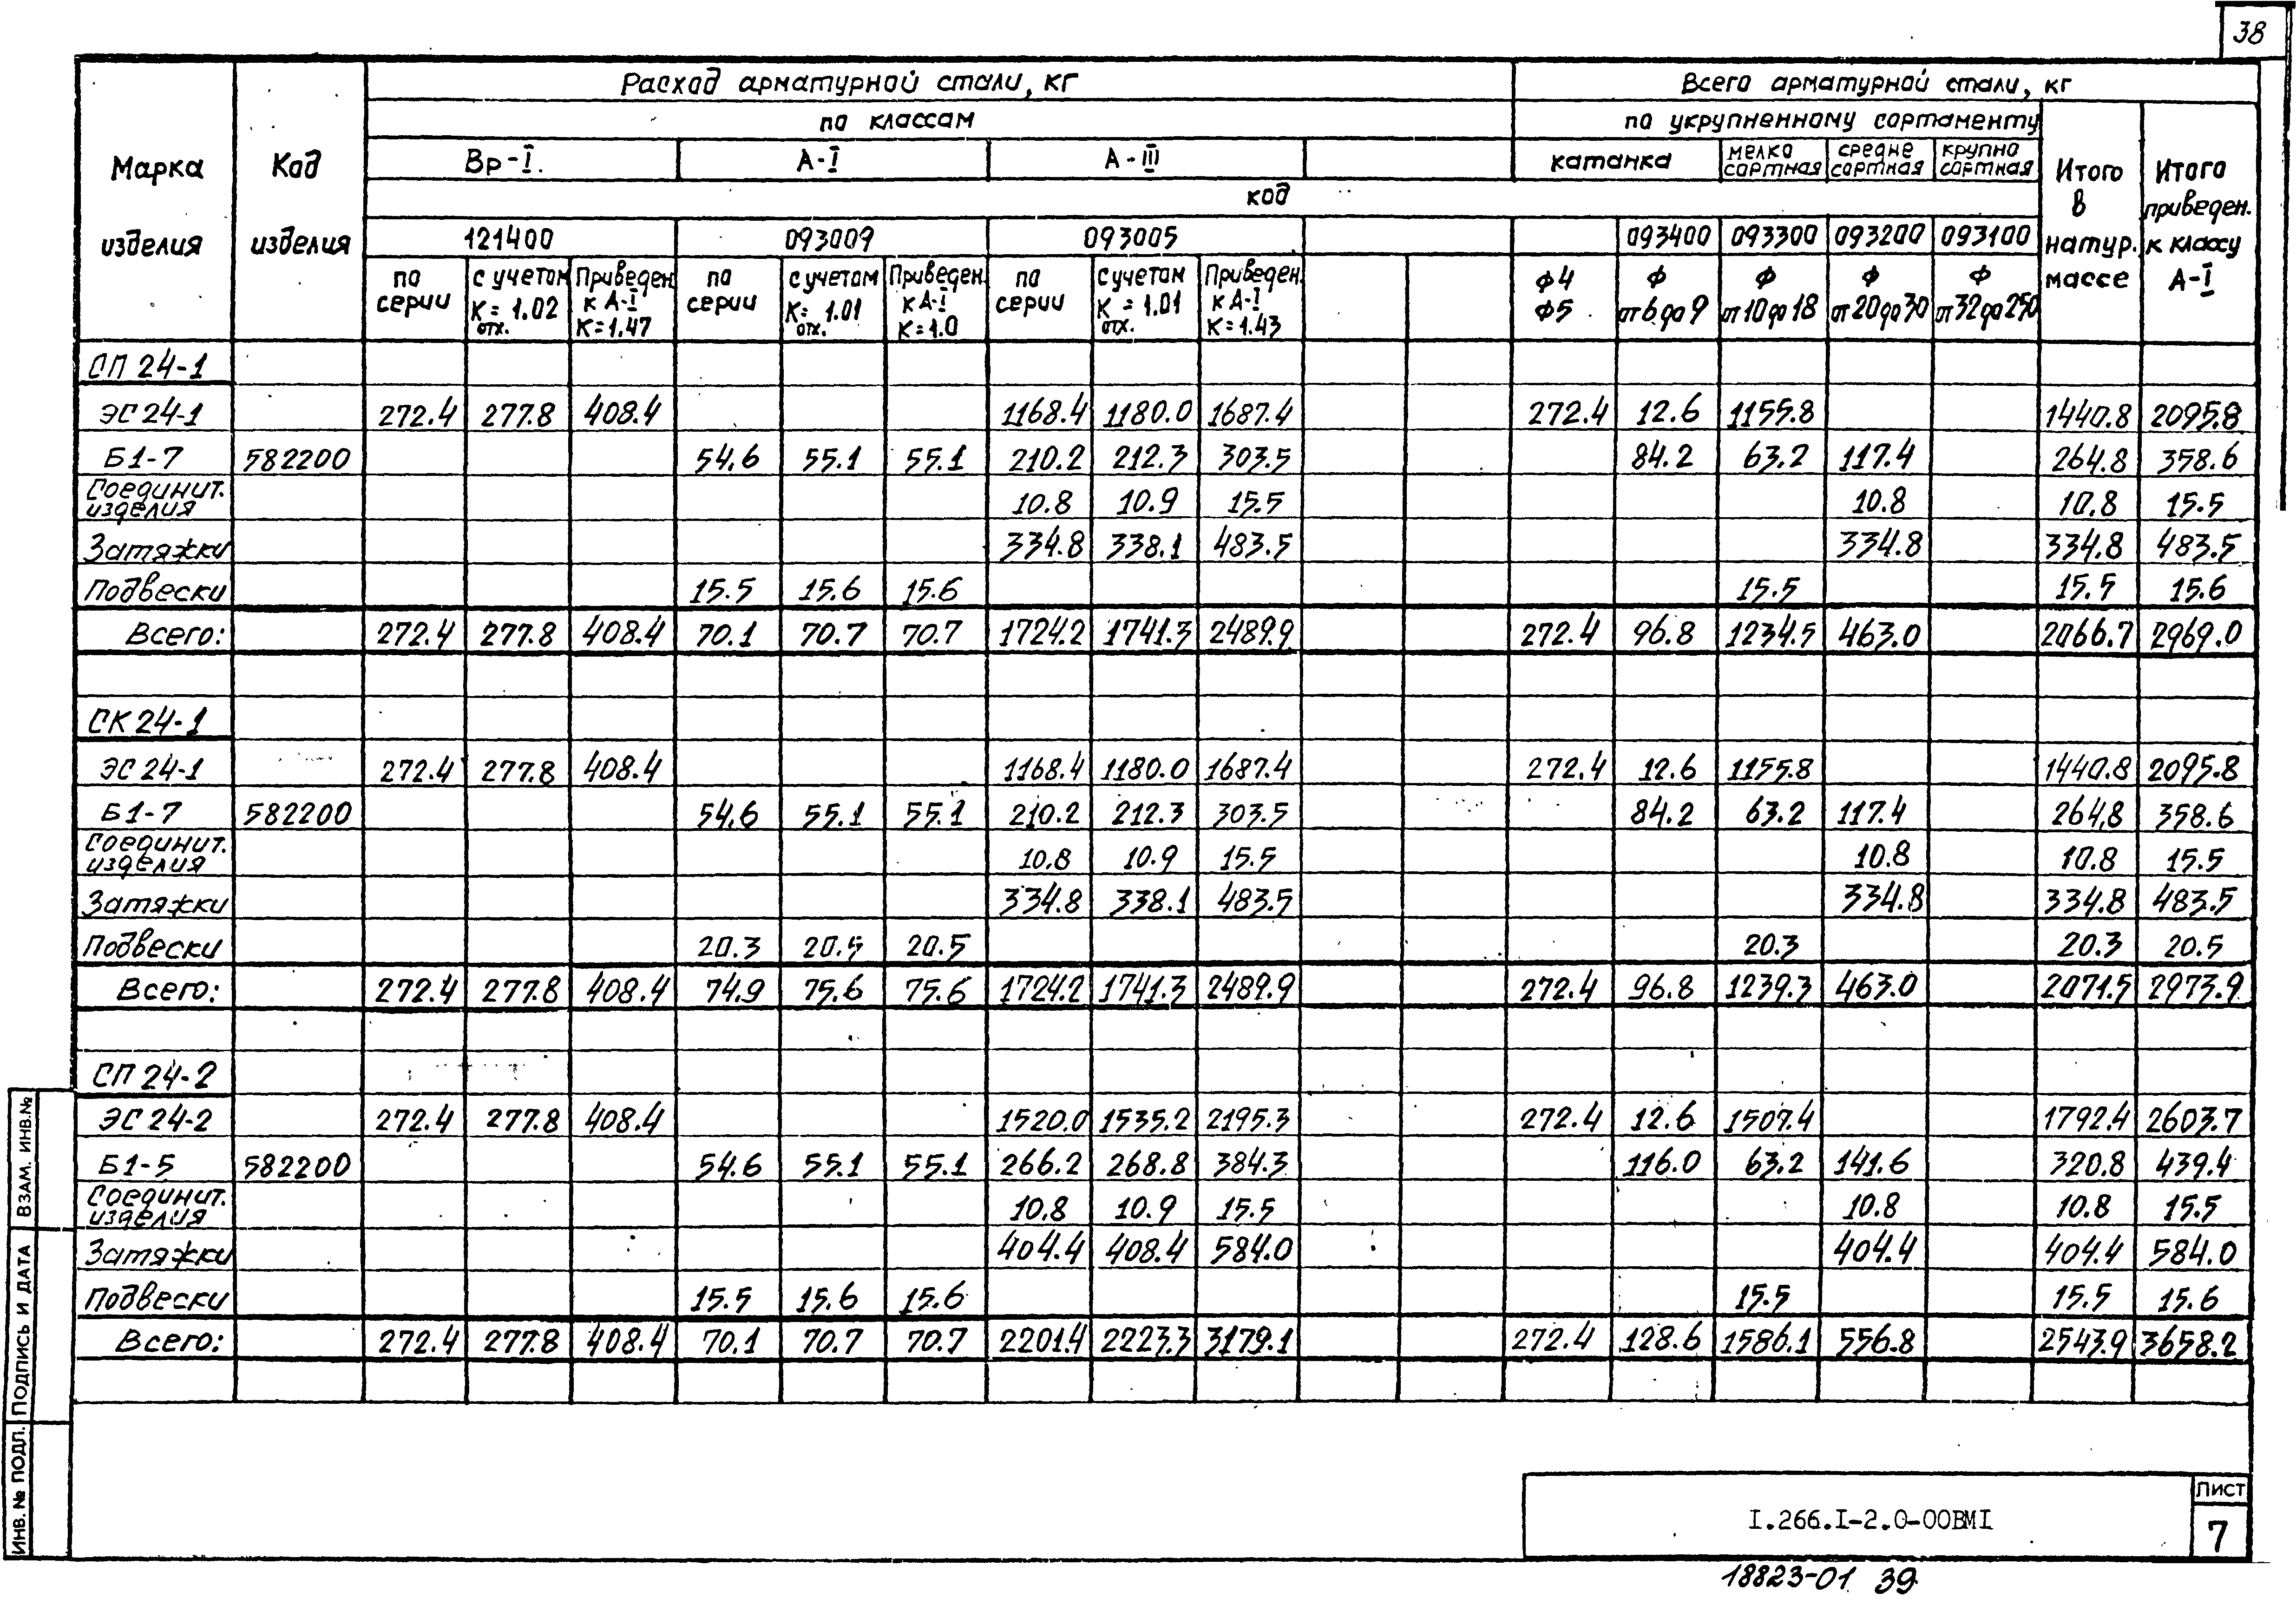 38
Расход арматурной стали, кг Всего арматурной стали, кг
по классам по укрупненному сортаменту
Марка изделия Код изделия Вр-I. А-I А-III катанка мелко сортная средне сортная крупно сортная Итого в натур. массе Итого приведен. к классу А-I
код
121400 093009 093005 093400 093300 093200 093100
по серии с учетом К отх. = 1.02 Приведен. к А-I К=1.47 по серии с учетом К отх. = 1.01 Приведен. к А-I К=1.0 по серии с учетом К отх. = 1.01 Приведен. к А-I К=1.43 ф4 ф5 ф от 6 до 9 ф от 10 до 18 ф от 20 до 30 ф от 32 до 250
СП 24-1
ЭС 24-1 272.4 277.8 408.4 1168.4 1180.0 1687.4 272.4 12.6 1155.8 1440.8 2095.8
Б1-7 582200 54.6 55.1 55.1 210.2 212.3 303.5 84.2 63.2 117.4 264.8 358.6
Соединит. изделия 10.8 10.9 15.5 10.8 10.8 15.5
Затяжки 334.8 338.1 483.5 334.8 334.8 483.5
Подвески 15.5 15.6 15.6 15.5 15.5 15.6
Всего: 272.4 277.8 408.4 70.1 70.7 70.7 1724.2 1741.3 2489.9 272.4 96.8 1234.5 463.0 2066.7 2969.0
СК 24-1
ЭС 24-1 272.4 277.8 408.4 1168.4 1180.0 1687.4 272.4 12.6 1155.8 1440.8 2095.8
Б1-7 582200 54.6 55.1 55.1 210.2 212.3 303.5 84.2 63.2 117.4 264.8 358.6
Соединит. изделия 10.8 10.9 15.5 10.8 10.8 15.5
Затяжки 334.8 338.1 483.5 334.8 334.8 483.5
Подвески 20.3 20.5 20.5 20.3 20.3 20.5
Всего: 272.4 277.8 408.4 74.9 75.6 75.6 1724.2 1741.3 2489.9 272.4 96.8 1239.3 463.0 2071.5 2973.9
СП 24-2
ЭС 24-2 272.4 277.8 408.4 1520.0 1535.2 2195.3 272.4 12.6 1507.4 1792.4 2603.7
Б1-5 582200 54.6 55.1 55.1 266.2 268.8 384.3 116.0 63.2 141.6 320.8 439.4
Соединит. изделия 10.8 10.9 15.5 10.8 10.8 15.5
Затяжки 404.4 408.4 584.0 404.4 404.4 584.0
Подвески 15.5 15.6 15.6 15.5 15.5 15.6
Всего: 272.4 277.8 408.4 70.1 70.7 70.7 2201.4 2223.3 3179.1 272.4 128.6 1586.1 556.8 2543.9 3658.2
ИНВ. № ПОДЛ. ПОДПИСЬ И ДАТА ВЗАМ. ИНВ.№
I.266.I-2.0-00ВМI
Лист
7
18823-01 39